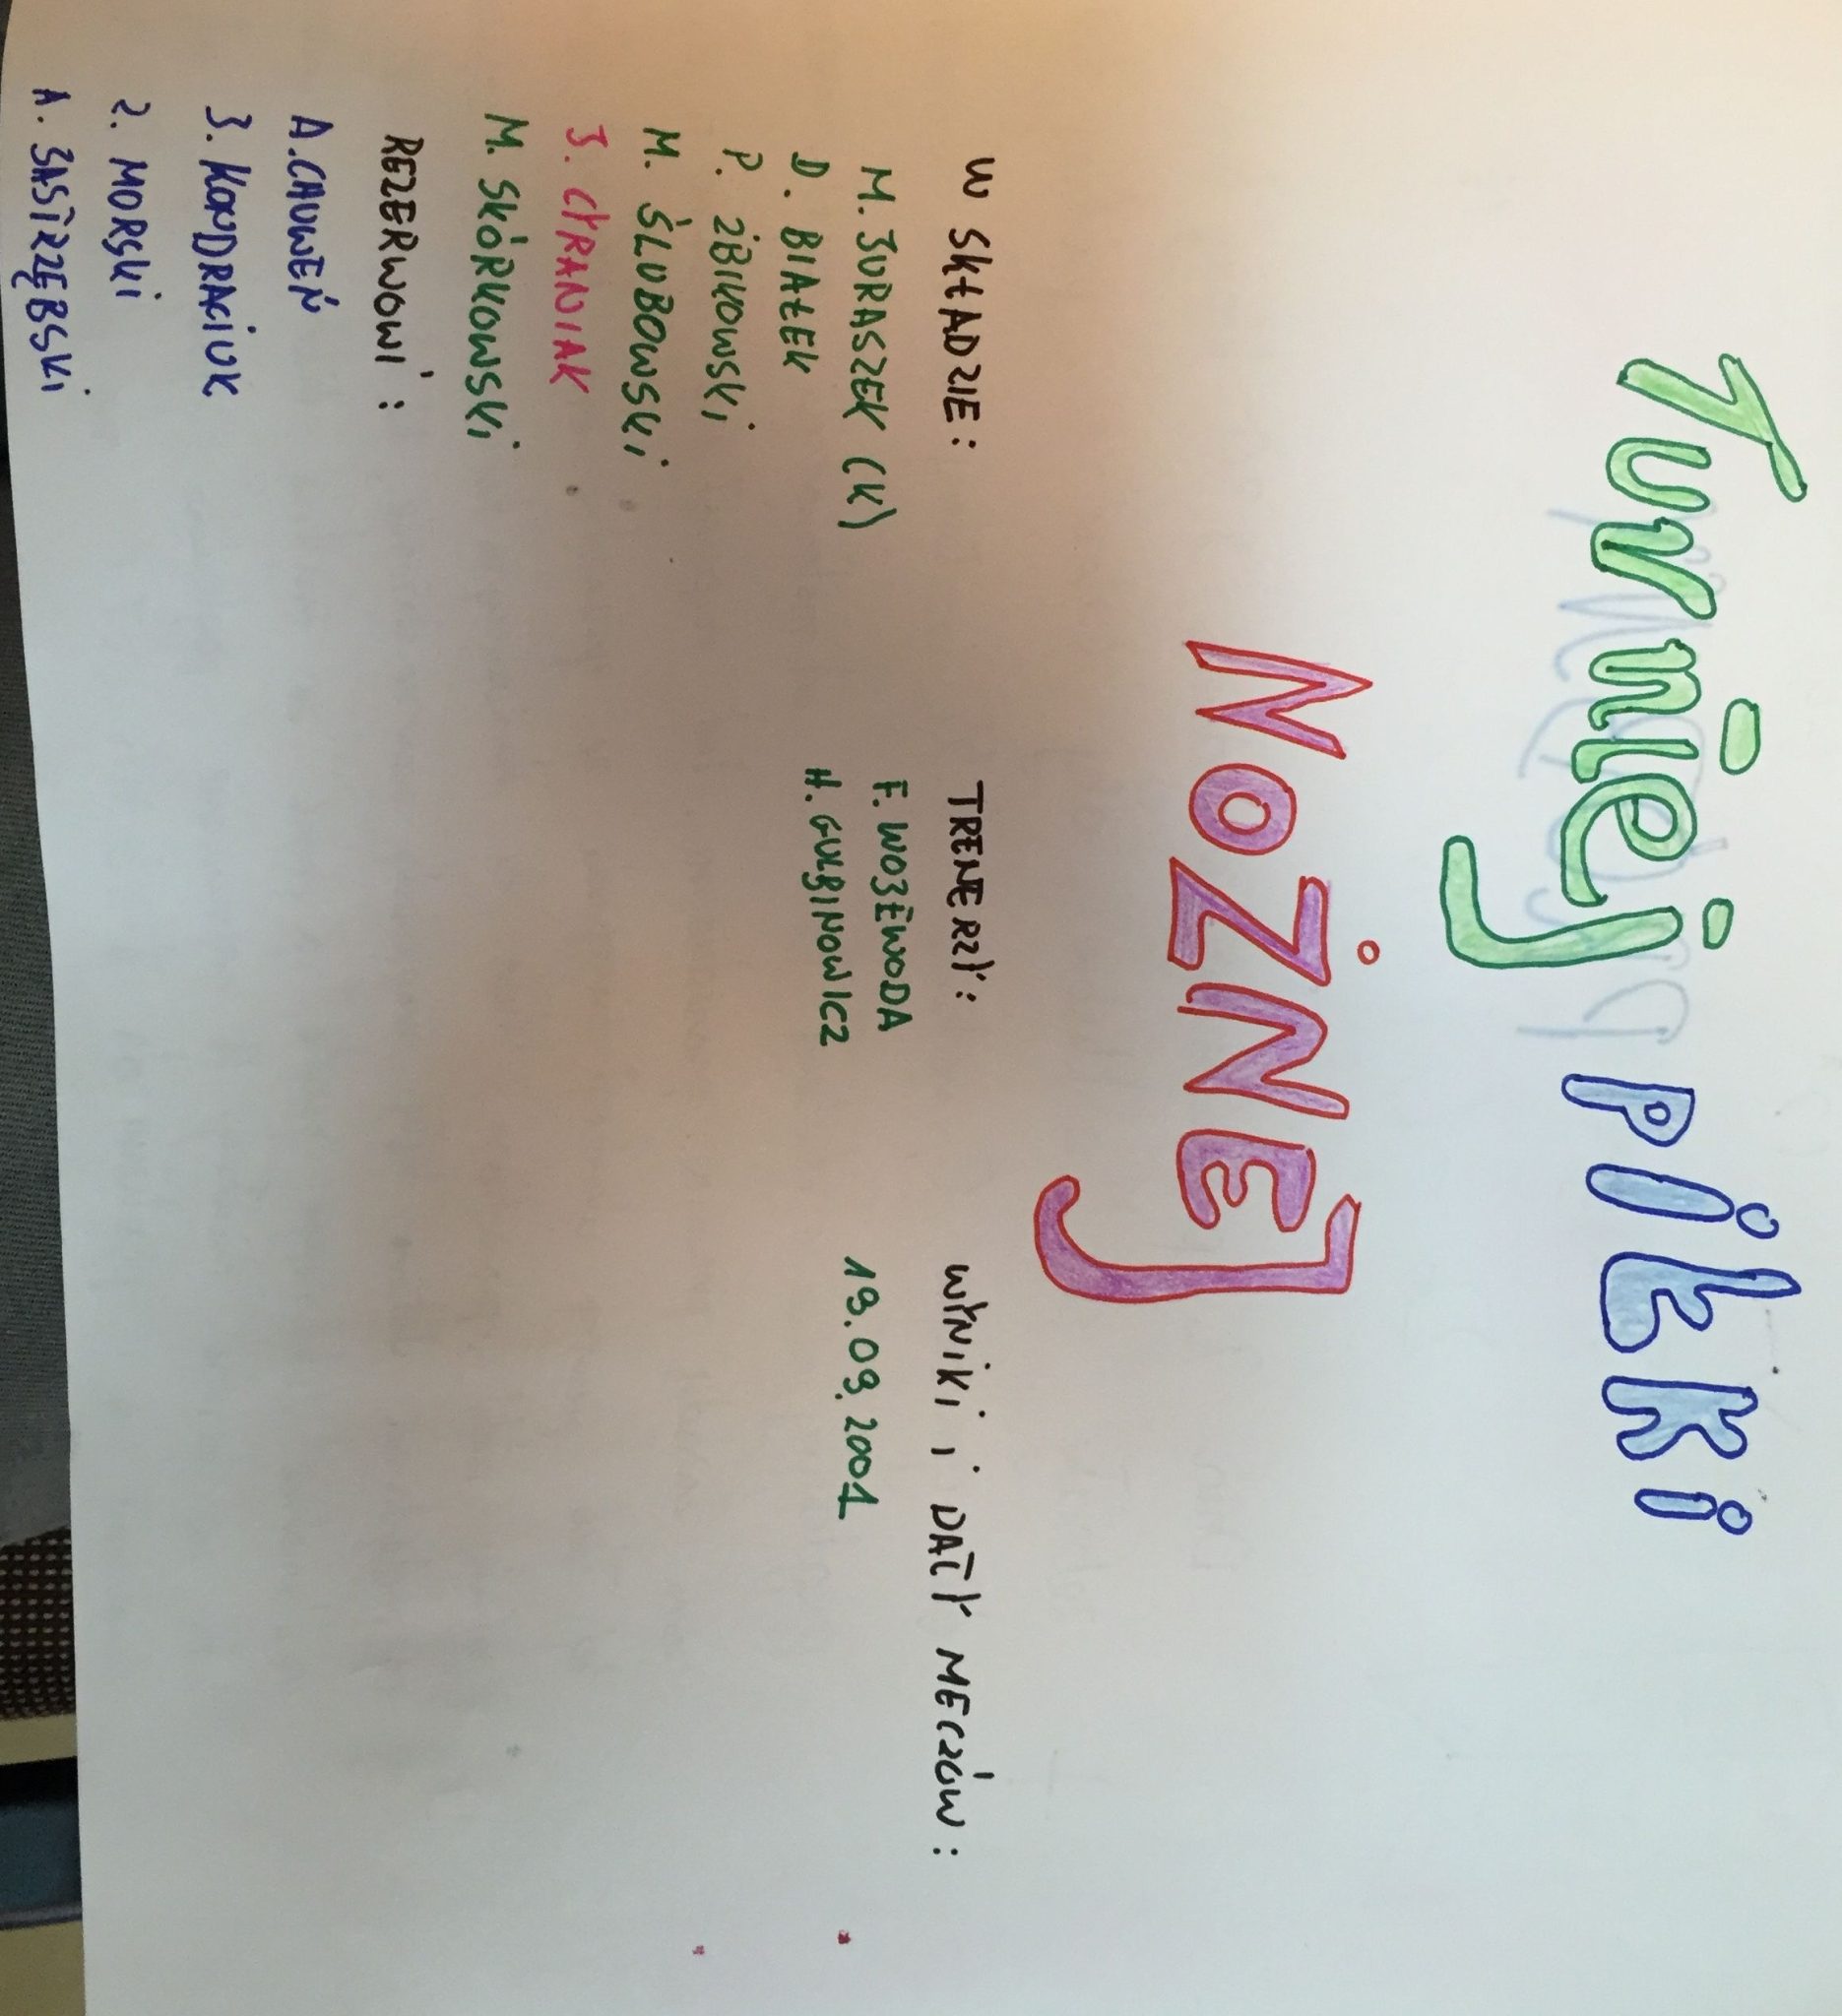 Turniej PIŁKI
NOŻNEJ
W SKŁADZIE:
TRENERZY:
WYNIKI i DATY MECZÓW:
M. JURASZEK (K)
F. WOJEWODA
19.09.2001
D. BIAŁEK
H. GULBINOWICZ
P. ŻBIKOWSKI
M. ŚLUBOWSKI
J. CYRANIAK
M. SKÓRKOWSKI
REZERWOWI:
A.
J. KONDRACIUK
Z. MORSKI
A. JASTRZĘBSKI